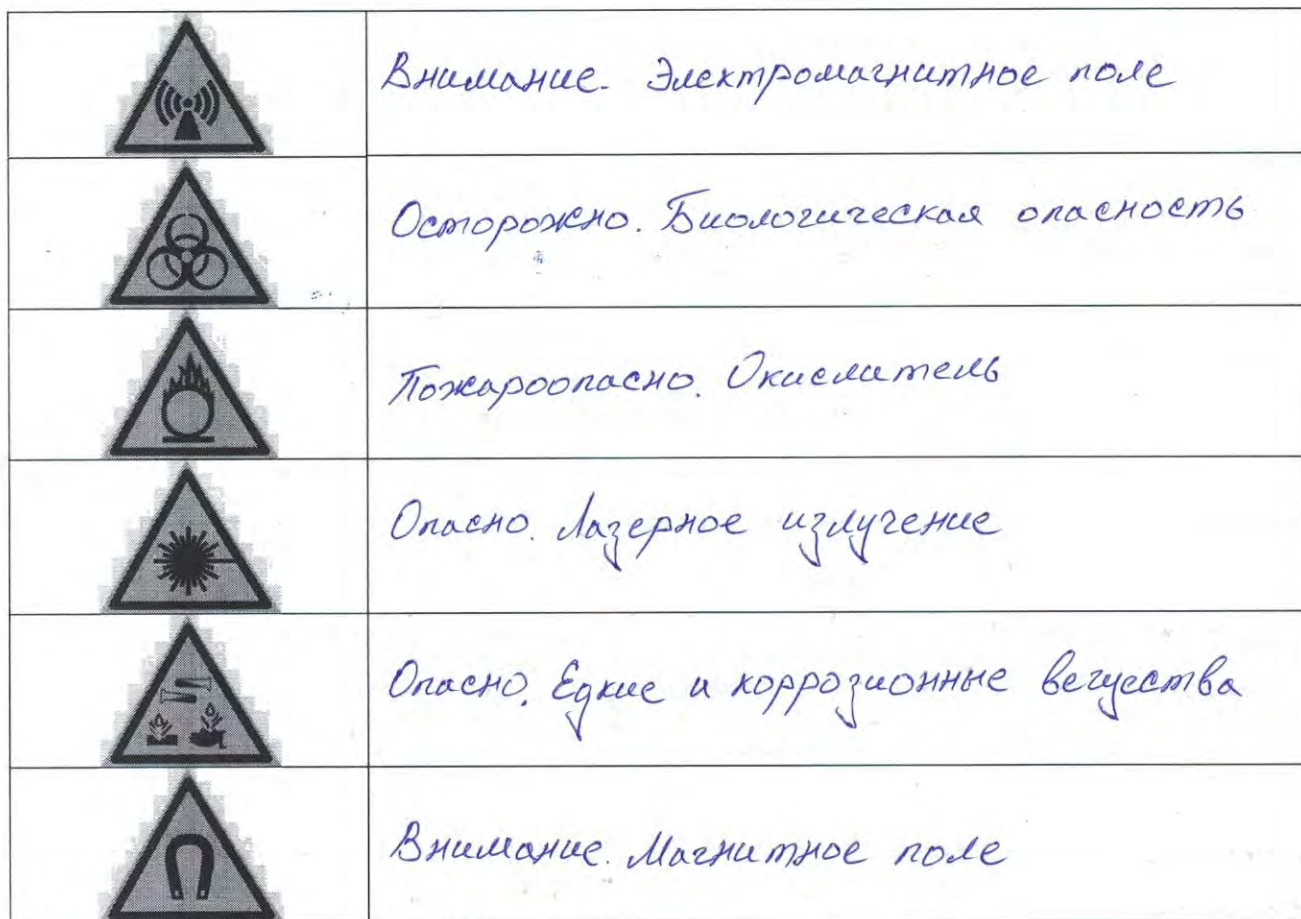 Внимание. Электромагнитное поле
Осторожно. Биологическая опасность
Пожароопасно. Окислитель
Опасно. Лазерное излучение
Опасно. Едкие и коррозионные вещества
Внимание. Магнитное поле